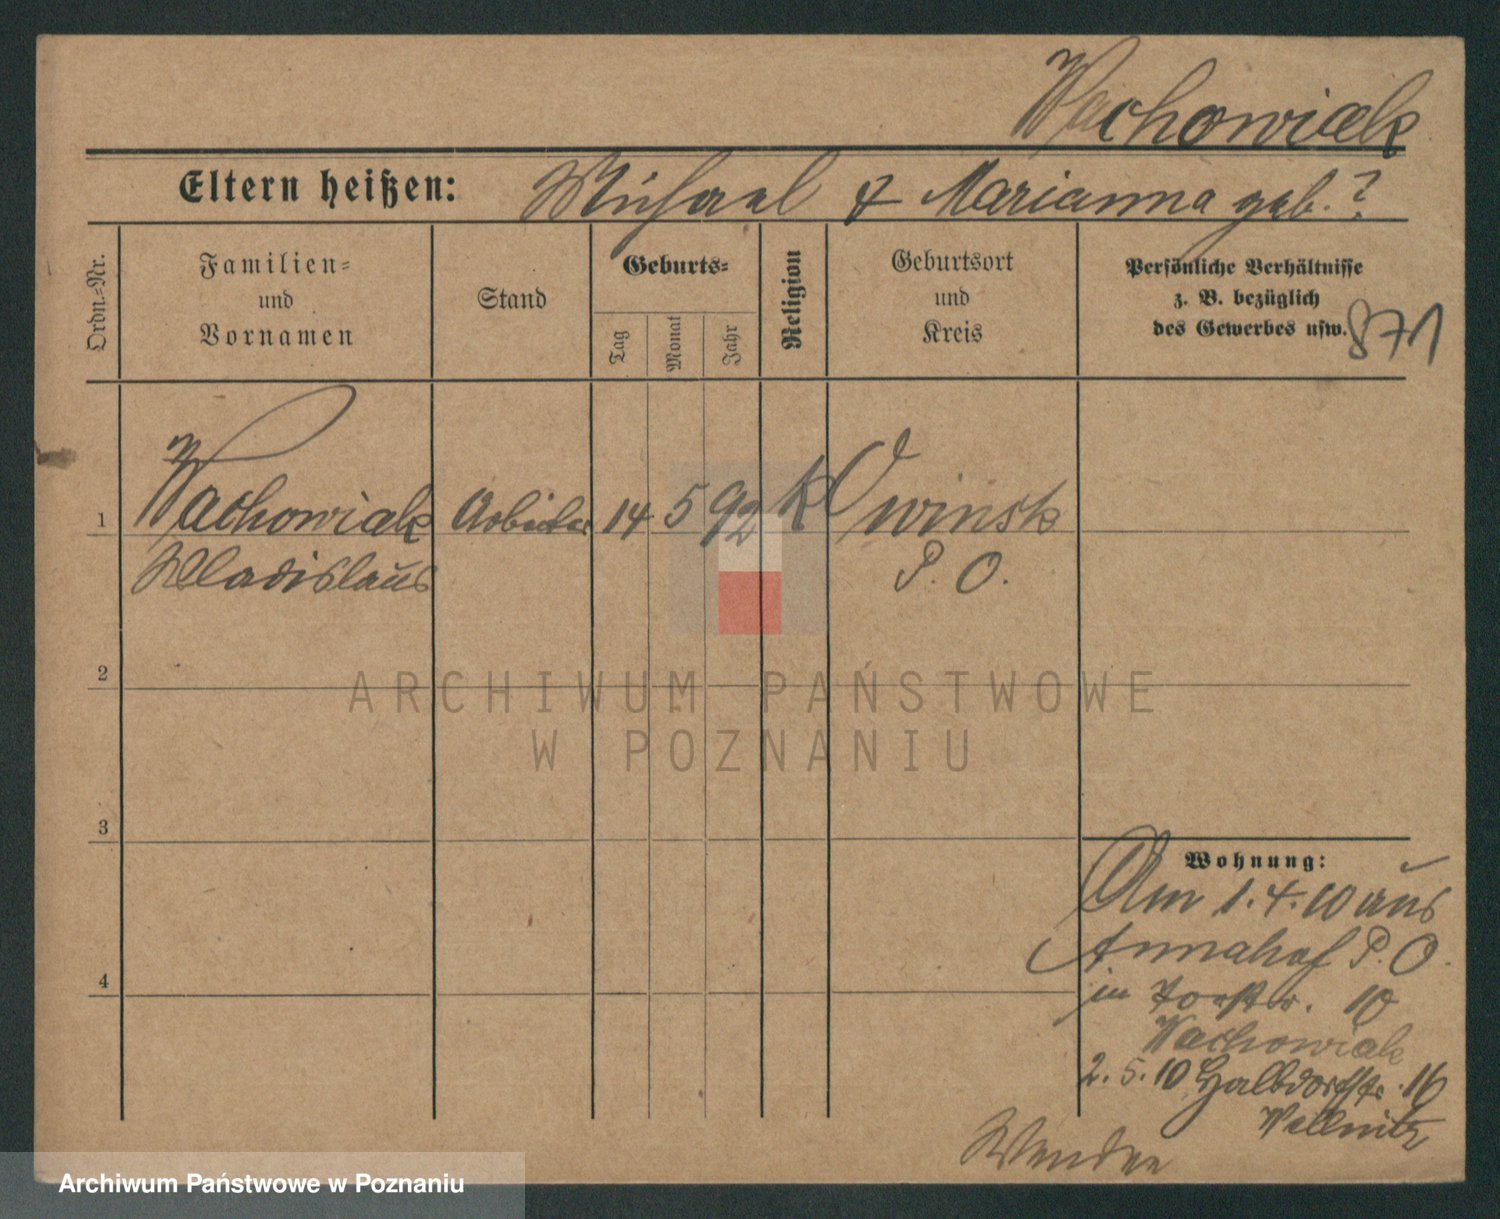 Wachowiak
Eltern heißen: Michael & Marianna geb. ?
Ordn.-Nr.
Familien-
und
Vornamen
Stand
Geburts-
Tag
Monat
Jahr
Religion
Geburtsort
und
Kreis
Persönliche Verhältnisse
z. B. bezüglich
des Gewerbes usw.
871
1 Wachowiak Arbeiter 14 5 92 K Owinsk
Wladislaus P. O.
2
3
4
Wohnung:
Am 1.4.10 aus
Annahof P. O.
in 10
Wachowiak
2.5.10 Halbdorfstr. 16
Wellnitz
Wenden
ARCHIWUM PAŃSTWOWE
W POZNANIU
Archiwum Państwowe w Poznaniu